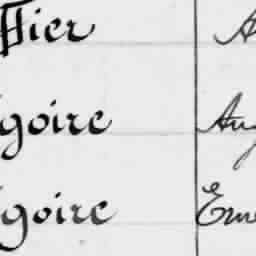 ffier A
goire Aug
goire Erne